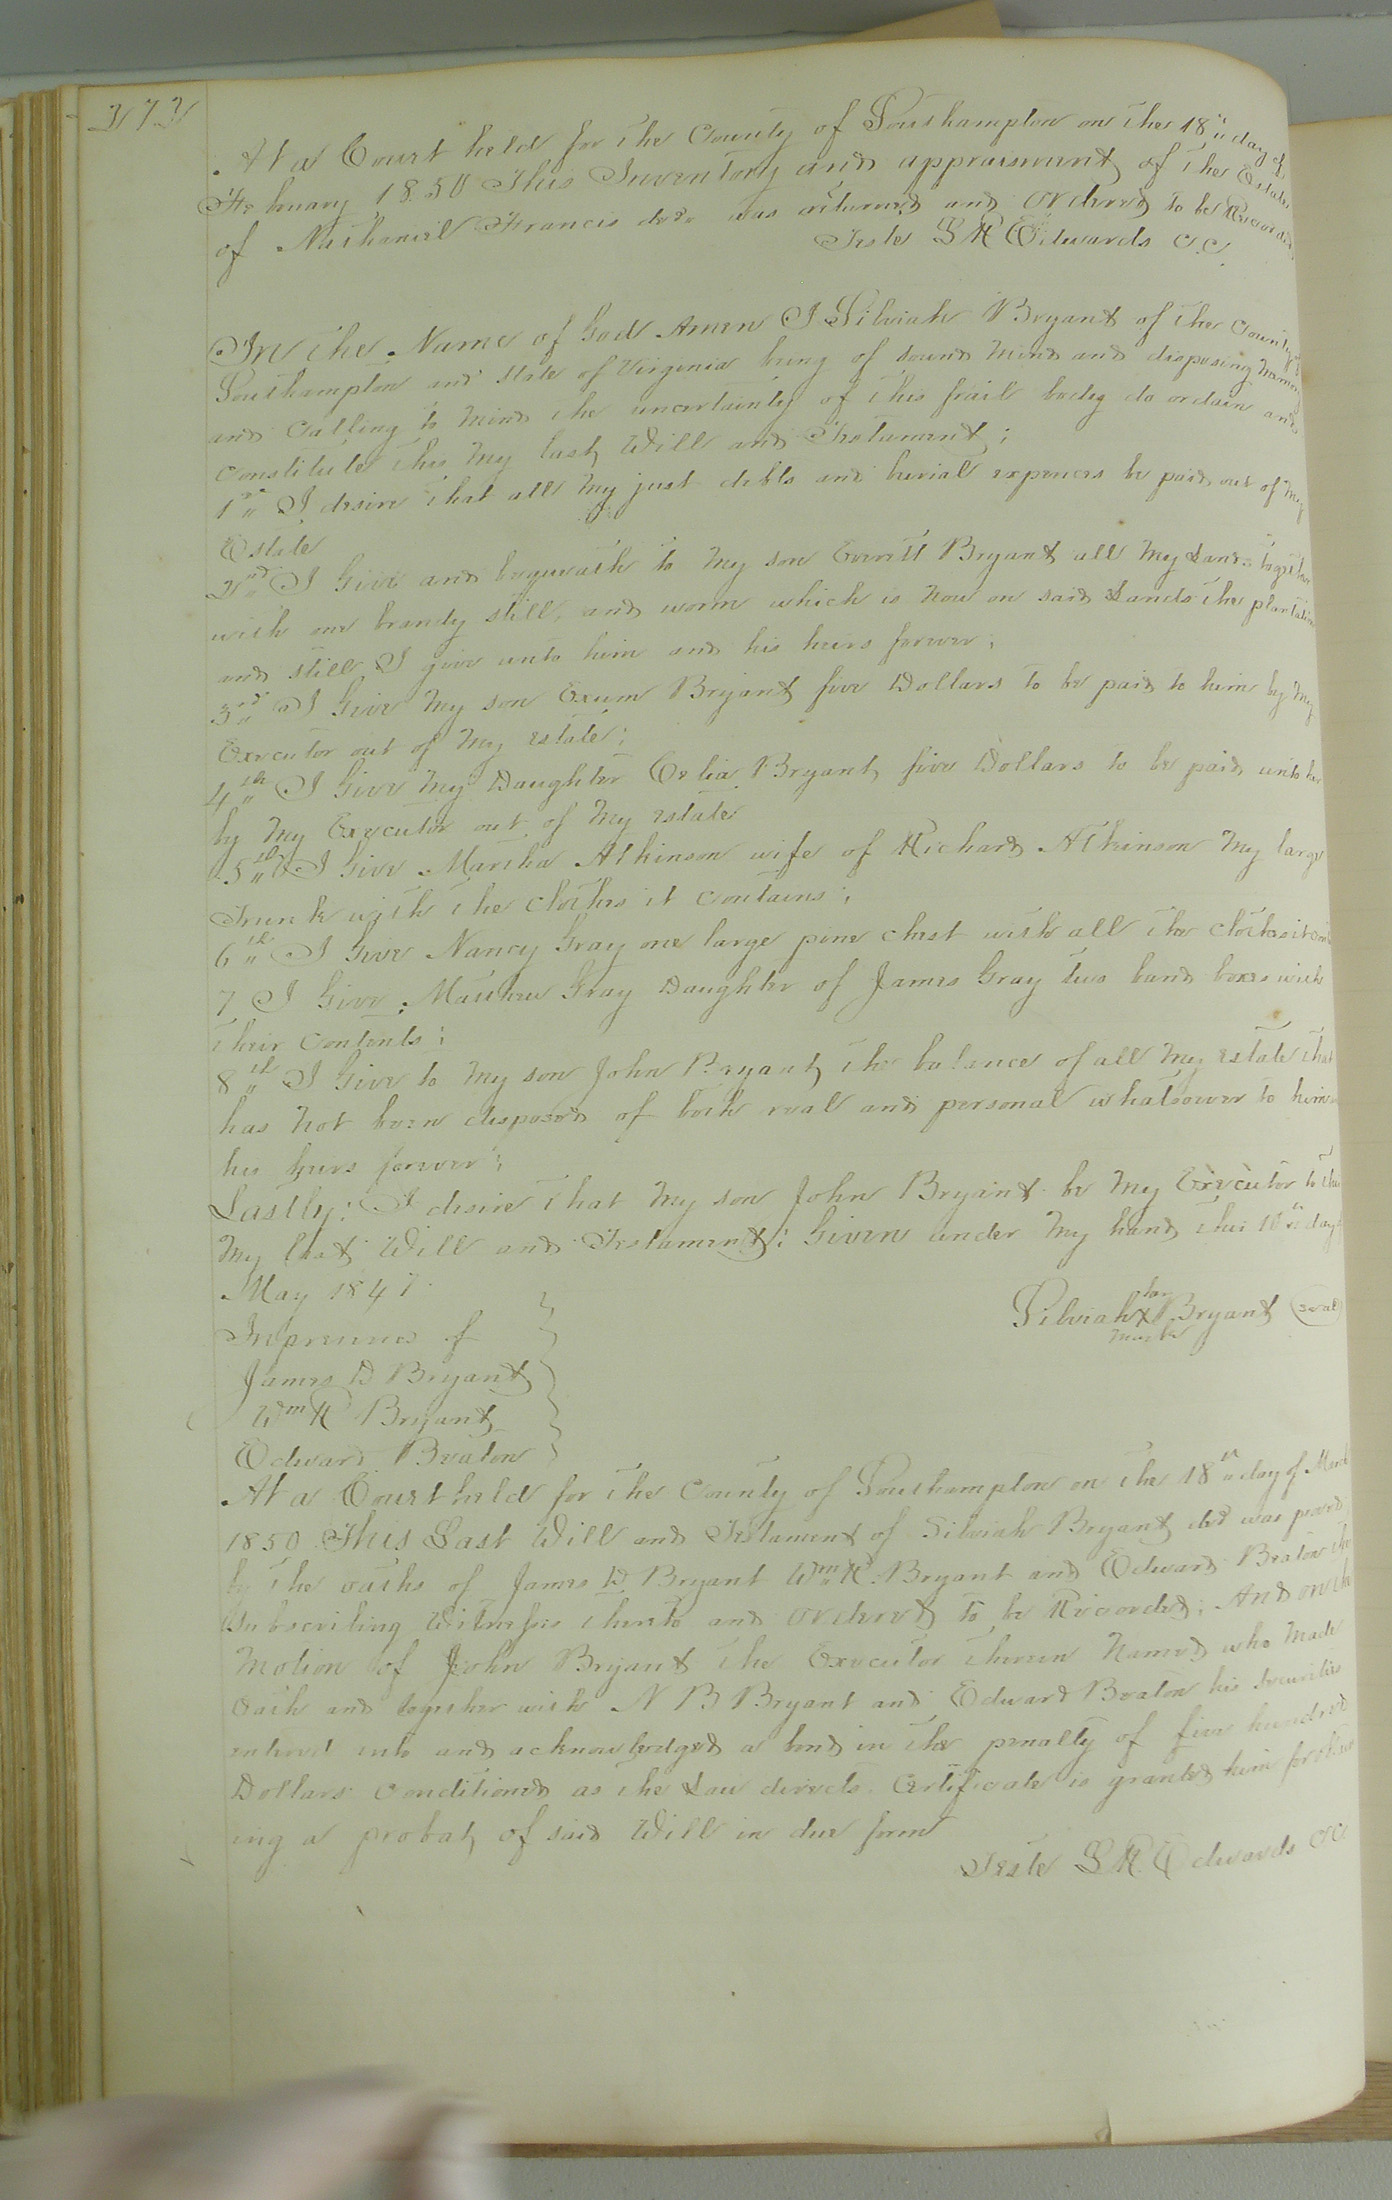 272
At a Court held for the County of Southampton on the 18th day of
February 1850 This Inventory and appraisment of the Estate
of Nathaniel Francis decd was returned and Ordered to be Recorded
Teste L R Edwards C.C.
In the Name of God Amen I Silviah Bryant of the County of
Southampton and State of Virginia being of sound mind and disposing memory
and Calling to mind the uncertainty of this frail body do ordain and
constitute this my last Will and Testament;
1st I desire that all my just debts and burial expences be paid out of my
Estate
2nd I Give and bequeath to my son Everitt Bryant all my Lands together
with one brandy still, and worm which is now on said Lands the plantation
and still I give unto him and his heirs forever;
3rd I Give my son Exum Bryant five Dollars to be paid to him by my
Executor out of my estate;
4th I Give my Daughter Celia Bryant five Dollars to be paid unto her
by my Executor out of my estate
5th I Give Martha Atkinson wife of Richard Atkinson my large
Trunk with the clothes it contains;
6th I Give Nancy Gray one large pine chest with all the clothes it
7 I Give Gray Daughter of James Gray two band boxes with
their contents;
8th I Give to my son John Bryant the balance of all my estate that
has not been disposed of both real and personal whatsoever to him
his heirs forever;
Lastly: I desire that my son John Bryant be my Executor to this
my last Will and Testament: Given under my hand this 10th day
May 1847
Silviah her X mark Bryant (seal)
In presence of
James D Bryant
Wm R Bryant
Edward Beaton
At a Court held for the County of Southampton on the 18th day of March
1850 This Last Will and Testament of Silviah Bryant decd was proved
by the oaths of James D Bryant Wm R. Bryant and Edward Beaton the
Subscribing Witnesses thereto and Ordered to be Recorded; And on the
Motion of John Bryant the Executor therein Named who made
Oath and together with N B Bryant and Edward Beaton his Securities
entered into and acknowledged a bond in the penalty of five hundred
Dollars Conditioned as the Law directs Certificate is granted him for obtain
ing a probat of said Will in due form
Teste L R Edwards CC